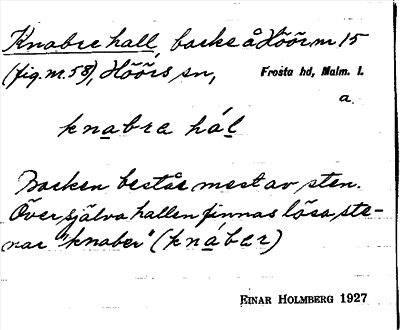 Knabre hall, backe å Höör nr 15
(fig. nr. 58), Höörs sn, Frosta hd, Malm. l.
a.
knabra hál
Backen består mest av sten.
Över själva hallen finnas lösa ste-
nar "knaber" (knábar)
EINAR HOLMBERG 1927